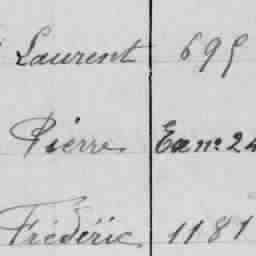 Laurent 695
Pierre Ex nº 24
Frédéric 1181